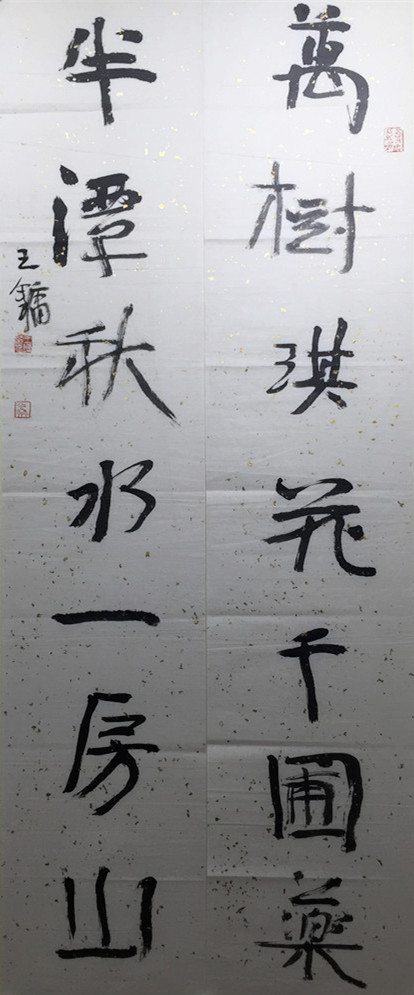 萬樹琪花千圃藥
半潭秋水一房山
王鏞